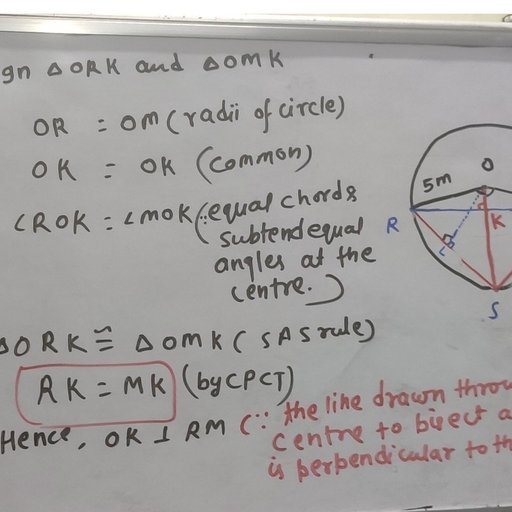 gn ΔORK and ΔOMK
OR = OM (radii of circle)
OK = OK (Common)
∠ROK = ∠MOK (∵ equal chords
subtend equal
angles at the
centre.)
ΔORK ≅ ΔOMK (SAS rule)
RK = MK (by CPCT)
Hence, OK ⊥ RM (∵ the line drawn throu
centre to bisect a
is perpendicular to th
5m
O
R
K
L
S